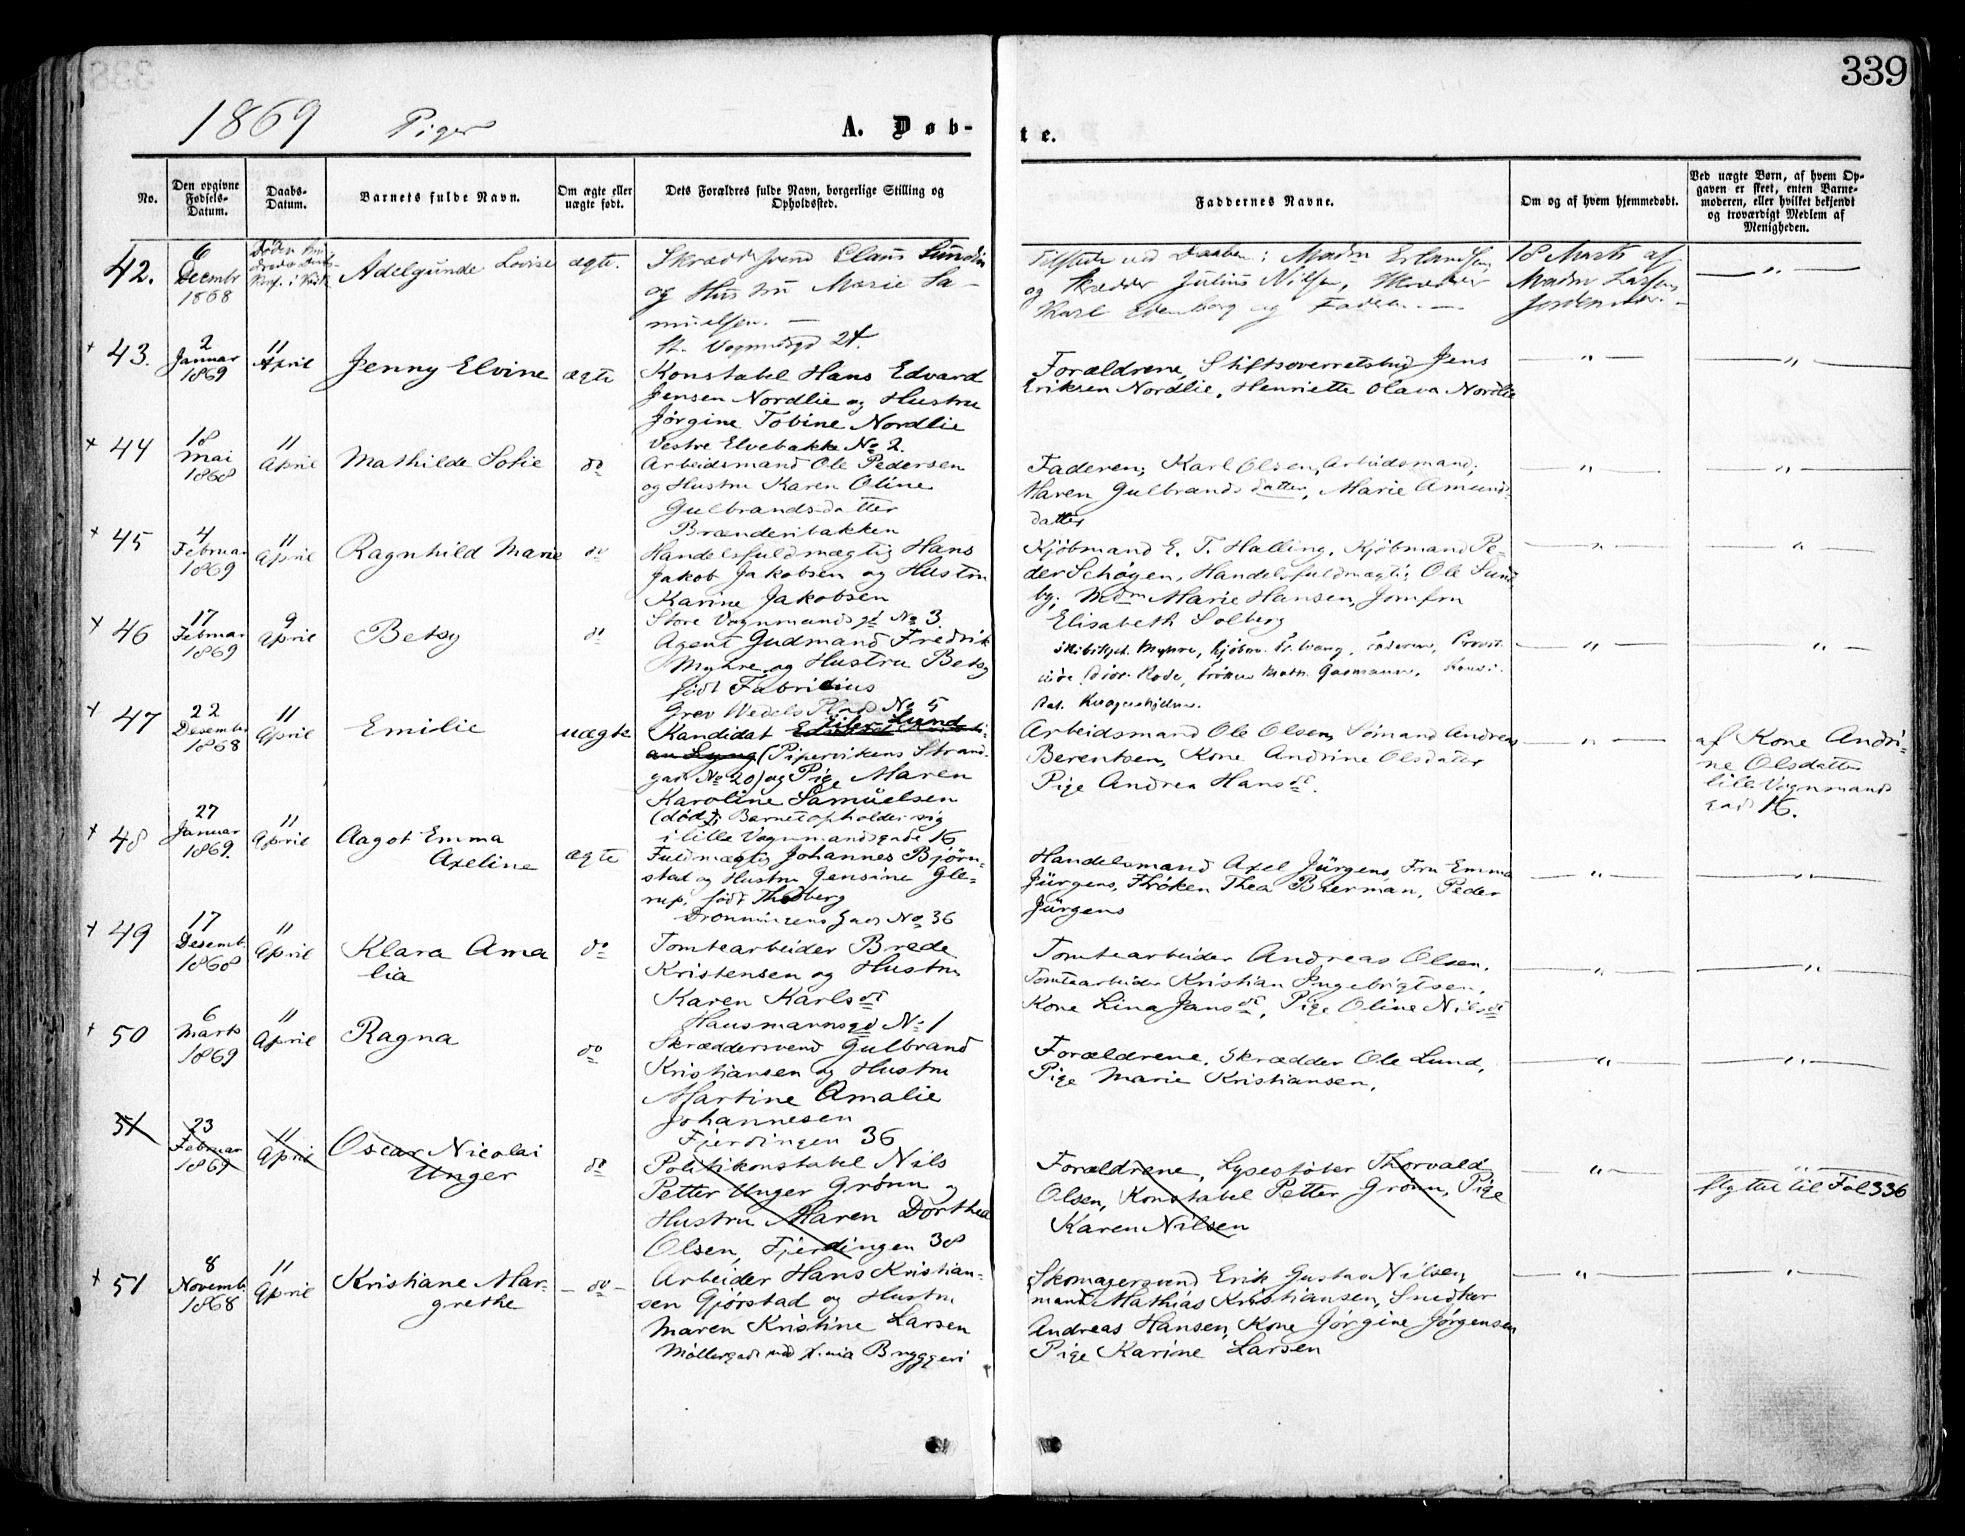 339
1869 Piger A. Døb-
te.
No.
Den opgivne Fødsels-Datum.
Daabs-Datum.
Barnets fulde Navn.
Om ægte eller uægte født.
Dets Forældres fulde Navn, borgerlige Stilling og Opholdssted.
Faddernes Navne.
Om og af hvem hjemmedøbt.
Ved uægte Børn, af hvem Opgaven er skeet, enten Barnemoderen, eller hvilket bekjendt og troværdigt Medlem af Menigheden.
42. 6 Decembr 1868 Adelgunde Lovise ægte.
Skræddersvend Claus Sundin
og Hustru Marie Sa-
muelsen. —
St. Vognmdsgd 24.
Tilstede ved Daaben: Madm Erlandsen,
og Skrædder Julius Nilsen, Skrædder
Karl Edenborg og Faderen. —
18 Marts af
Madm Larsen,
Jordemoder. —
— " —
+ 43. 2 Januar 1869 11 April Jenny Elvine ægte
Konstabel Hans Edvard
Jensen Nordlie og Hustru
Jørgine Tobine Nordlie
Vestre Elvebakke No 2.
Forældrene, Stiftsoverretsbud Jens
Eriksen Nordlie, Henriette Olava Nordlie
— " — — " —
+ 44 18 Mai 1868 11 April Mathilde Sofie do
Arbeidsmand Ole Pedersen
og Hustru Karen Oline
Gulbrandsdatter
Brænderibakken
Faderen; Karl Olsen, Arbeidsmand;
Maren Gulbrandsdatter, Marie Amunds-
datter
— " — — " —
+ 45 4 Februar 1869 11 April Ragnhild Marie do
Handelsfuldmægtig Hans
Jakob Jakobsen og Hustru
Karine Jakobsen
Store Vognmandsgd No 3.
Kjøbmand E. T. Halling, Kjøbmand Pe-
der Schøyen, Handelsfuldmægtig Ole Sund-
by; Mdm Marie Hansen, Jomfru
Elisabeth Solberg
— " — — " —
+ 46 17 Februar 1869 9 April Betsy do
Agent Gudmand Fredrik
Myhre og Hustru Betsy
født Fabricius
Grev Wedels Plads No 5
Skibskpt. Myhre, Kjøbm. Faderen,
Rode, Frøken Math. Gasmann,
— " — — " —
+ 47 22 Desembr 1868 11 April Emilie uægte
Kandidat Eiler Lund
(Pipervikens Strand-
gade No 20) og Pige Maren
Karoline Samuelsen
(død); Barnet opholder sig
i lille Vognmandsgade 16
Arbeidsmand Ole Olsen, Sømand Andreas
Berentsen, Kone Andrine Olsdatter
Pige Andrea Hansdt.
— " —
af Kone Andri-
ne Olsdatter
lille Vognmands
gade 16.
+ 48 27 Januar 1869. 11 April Aagot Emma
Axeline ægte
Fuldmægtig Johannes Bjørn-
stad og Hustru Jensine Gle-
rup, født Thodberg
Dronningens Gade No 36
Handelsmand Axel Jürgens, Fru Emma
Jürgens, Frøken Thea Baerman, Peder
Jürgens
— " — — " —
+ 49 17 Desemb. 1868 11 April Klara Ama
lia do
Tomtearbeider Brede
Kristensen og Hustru
Karen Karlsdt
Hausmannsgd No 1
Tomtearbeider Andreas Olsen,
Tomtearbeider Kristian Ingebrigtsen,
Kone Lina Jansdt, Pige Oline Nilsdt
— " — — " —
+ 50 6 Marts 1869 11 April Ragna do
Skræddersvend Gulbrand
Kristiansen og Hustru
Martine Amalie
Johannesen
Fjerdingen 36
Forældrene, Skrædder Ole Lund,
Pige Marie Kristiansen.
— " — — " —
51 23 Februar 1869 11 April Oscar Nicolai
Unger do
Politikonstabel Nils
Petter Unger Grønn og
Hustru Maren Dorthea
Olsen, Fjerdingen 38
Forældrene, Lysestøber Thorvald
Olsen, Konstabel Petter Grønn, Pige
Karen Nilsen
— " — — " —
flyttet til Fol 336
+ 51 8 Novemb. 1868 11 April Kristiane Mar-
grethe — do —
Arbeider Hans Kristian-
sen Gjørstad og Hustru
Maren Kristine Larsen
Møllergade ved Bryggeri
Skomagersvend Erik Gustav Nilsen,
Mathias Kristiansen, Snedker
Andreas Hansen, Kone Jørgine Jørgensen
Pige Karine Larsen
— " — — " —